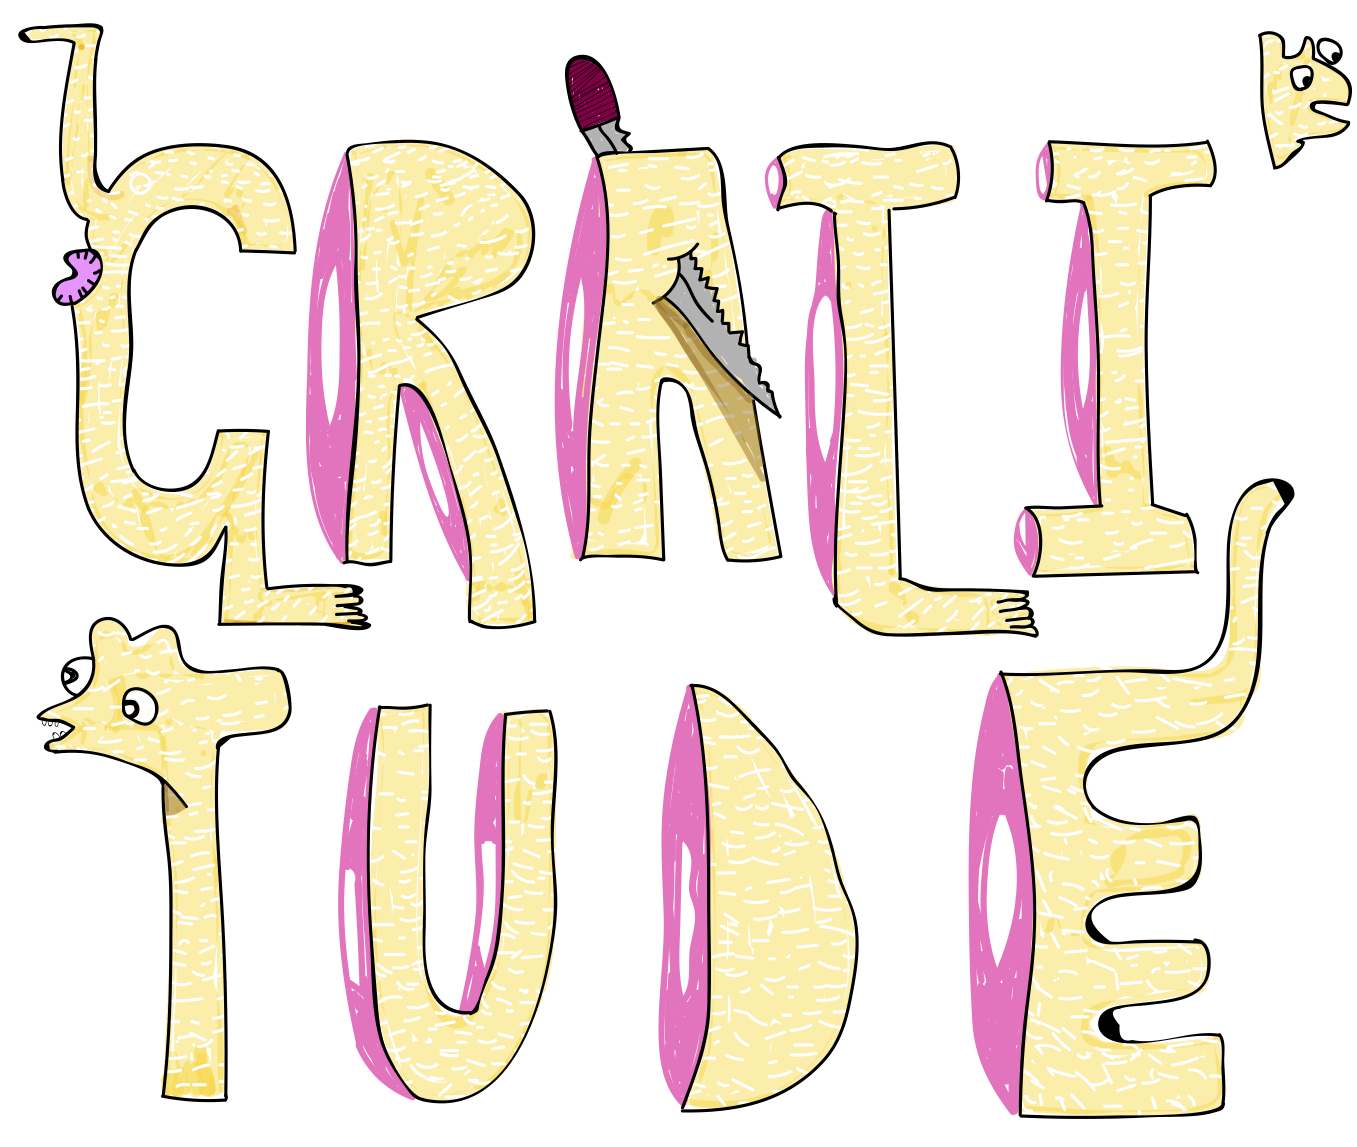 GRATI
TUDE